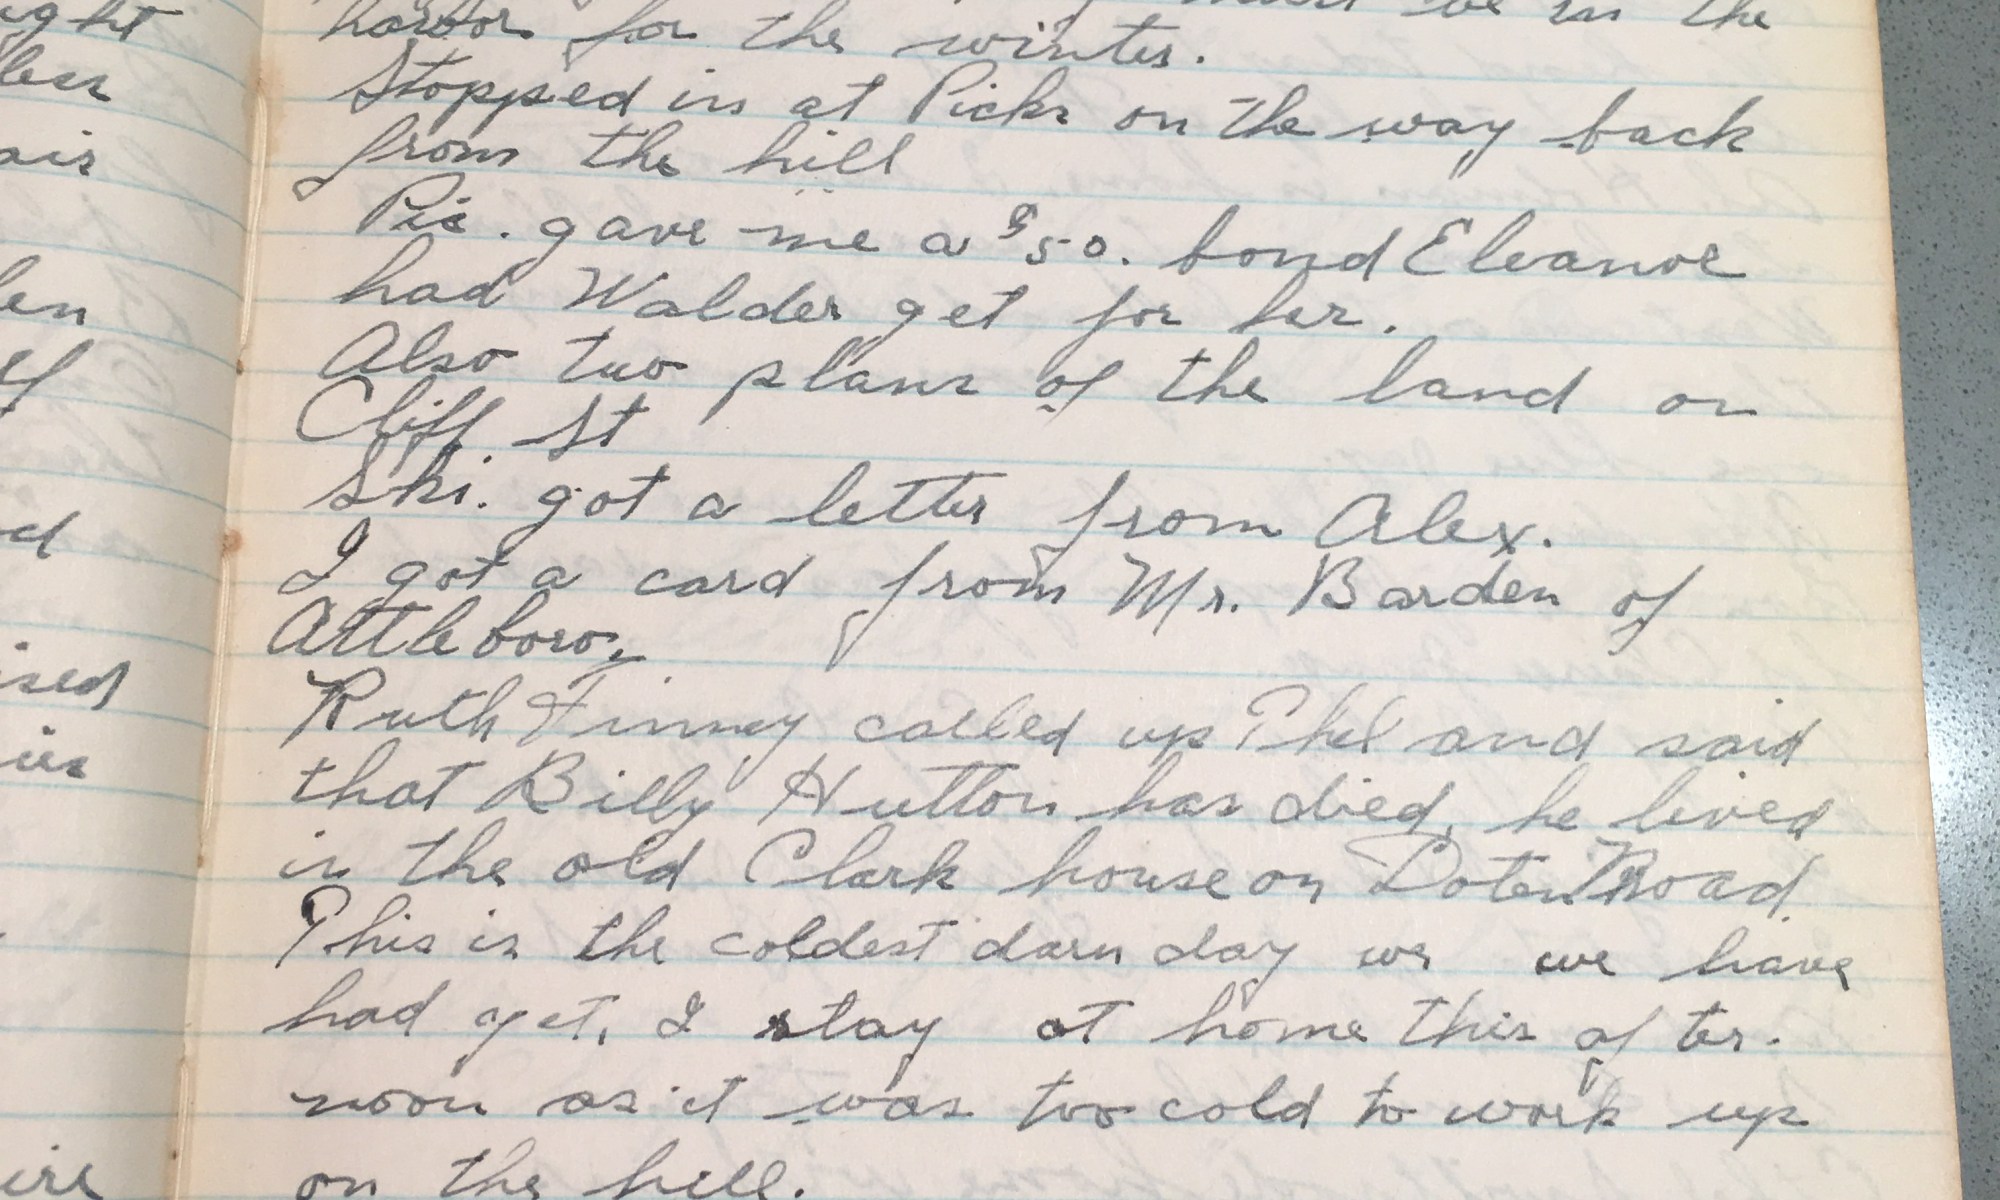 ight
less
air
len
of
ed
ised
us
ire
be in the
harbor for the winter.
Stopped in at Picks on the way back
from the hill
Pic. gave me a $50. bond Eleanor
had Walder get for her.
Also two plans of the land on
Cliff St
Ski. got a letter from Alex.
I got a card from Mr. Barden of
Attleboro.
Ruth Finney called up Phil and said
that Billy Hutton has died, he lived
in the old Clark house on Doten Road.
This is the coldest darn day we we have
had yet, I stay at home this after-
noon as it was too cold to work up
on the hill.